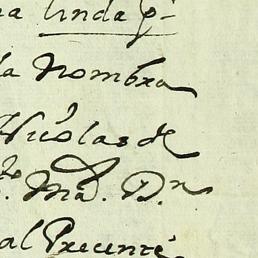 a linda p.
la Nombra
Nicolas de
Md. D.n
al Precente